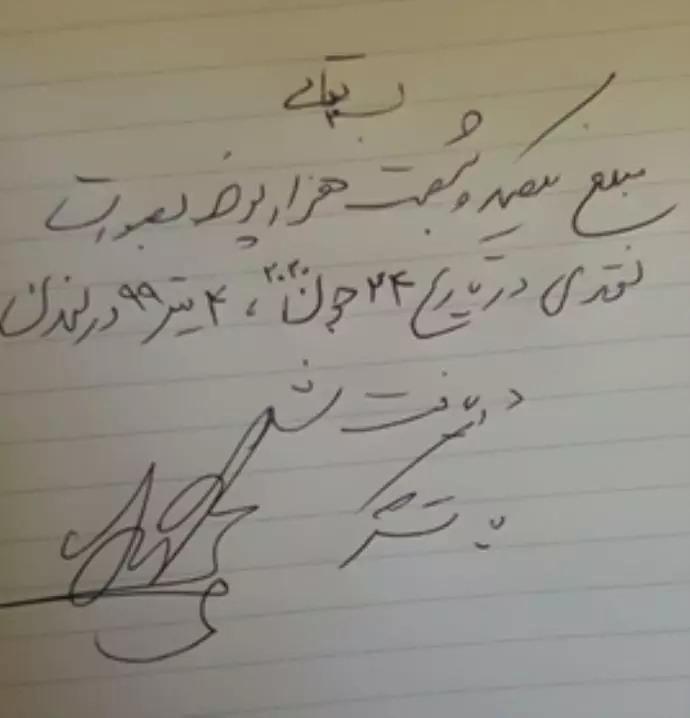 بسمه‌تعالی
مبلغ یکصد و شصت هزار پوند بصورت
نقدی در تاریخ ۲۴ جون ۲۰۲۰، ۴ تیر ۹۹ در لندن
دریافت شد
با تشکر